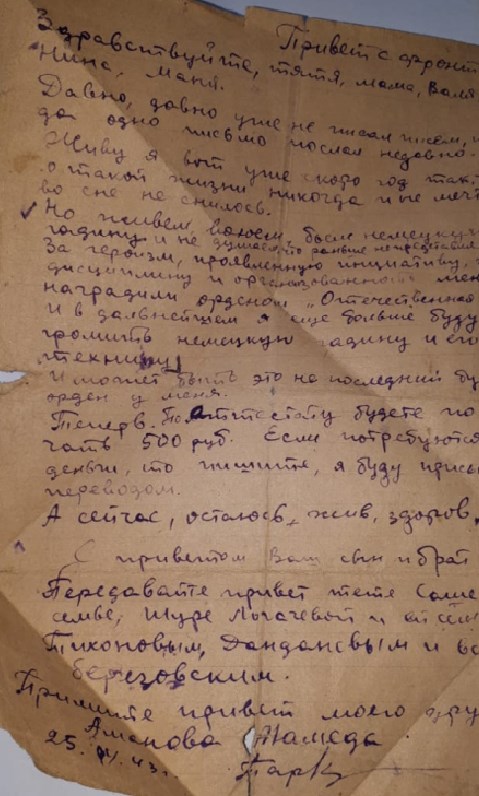 Привет с фронта
Здравствуйте, тятя, мама, Валя
Нина, Маня.
Давно, давно уже не писал писем, и
да одно письмо послал недавно.
Живу я вот уже скоро год так.
о такой жизни никогда и не меч
во сне не снилось.
Но живем, воюем, бьем немецкую
гадину и не думаем, что раньше не представ
За героизм, проявленную инициативу,
дисциплину и организованность меня
наградили орденом „Отечественно
И в дальнейшем я еще больше буду
громить немецкую гадину и его
технику
И может быть это не последний бу
орден у меня.
Теперь. По аттестату будете по
чать 500 руб. Если потребуются
деньги, то пишите, я буду присы
переводом.
А сейчас, остаюсь, жив, здоров,
С приветом Ваш сын и брат
Передавайте привет тете
семье, Шуре Логачевой и ей сем
Тихоновым, и вс
березовским.
Примите привет моего дру
Аманова
25. 43.